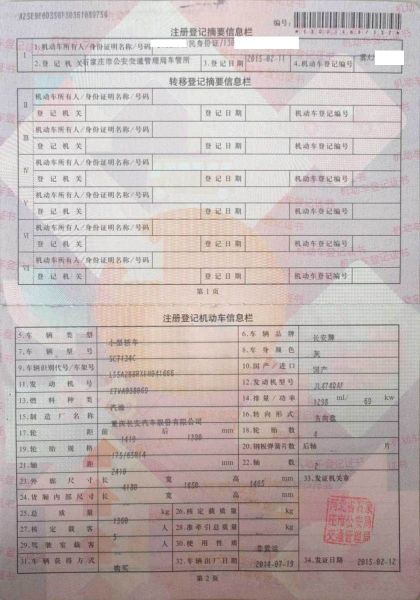 注册登记摘要信息栏
编号:
I
1.机动车所有人/身份证明名称/号码
民身份证/130
2.登记机关
石家庄市公安交通管理局车管所
3.登记日期
2015-02-11
4.机动车登记编号
冀
转移登记摘要信息栏
II
机动车所有人/身份证明名称/号码
登记机关
登记日期
机动车登记编号
III
机动车所有人/身份证明名称/号码
登记机关
登记日期
机动车登记编号
IV
机动车所有人/身份证明名称/号码
登记机关
登记日期
机动车登记编号
V
机动车所有人/身份证明名称/号码
登记机关
登记日期
机动车登记编号
VI
机动车所有人/身份证明名称/号码
登记机关
登记日期
机动车登记编号
VII
机动车所有人/身份证明名称/号码
登记机关
登记日期
机动车登记编号
第1页
注册登记机动车信息栏
5.车辆类型
小型轿车
6.车辆品牌
长安牌
7.车辆型号
8.车身颜色
灰
9.车辆识别代号/车架号
10.国产/进口
国产
11.发动机号
12.发动机型号
13.燃料种类
汽油
14.排量/功率
1298 ml/ 69 kw
15.制造厂名称
重庆长安汽车股份有限公司
16.转向形式
方向盘
17.轮距
前 1410 后 mm
18.轮胎数
4
19.轮胎规格
175/65R14
20.钢板弹簧片数
后轴 片
21.轴距
2410 mm
22.轴数
2
23.外廓尺寸
长 4130 宽 高 1465 mm
33.发证机关章
24.货厢内部尺寸
长 宽 高 mm
25.总质量
1300 kg
26.核定载质量
kg
27.核定载客
5 人
28.准牵引总质量
kg
29.驾驶室载客
人
30.使用性质
非营运
31.车辆获得方式
购买
32.车辆出厂日期
2014-07-19
34.发证日期
2015-02-12
河北省石家
庄市公安局
交通管理局
第2页